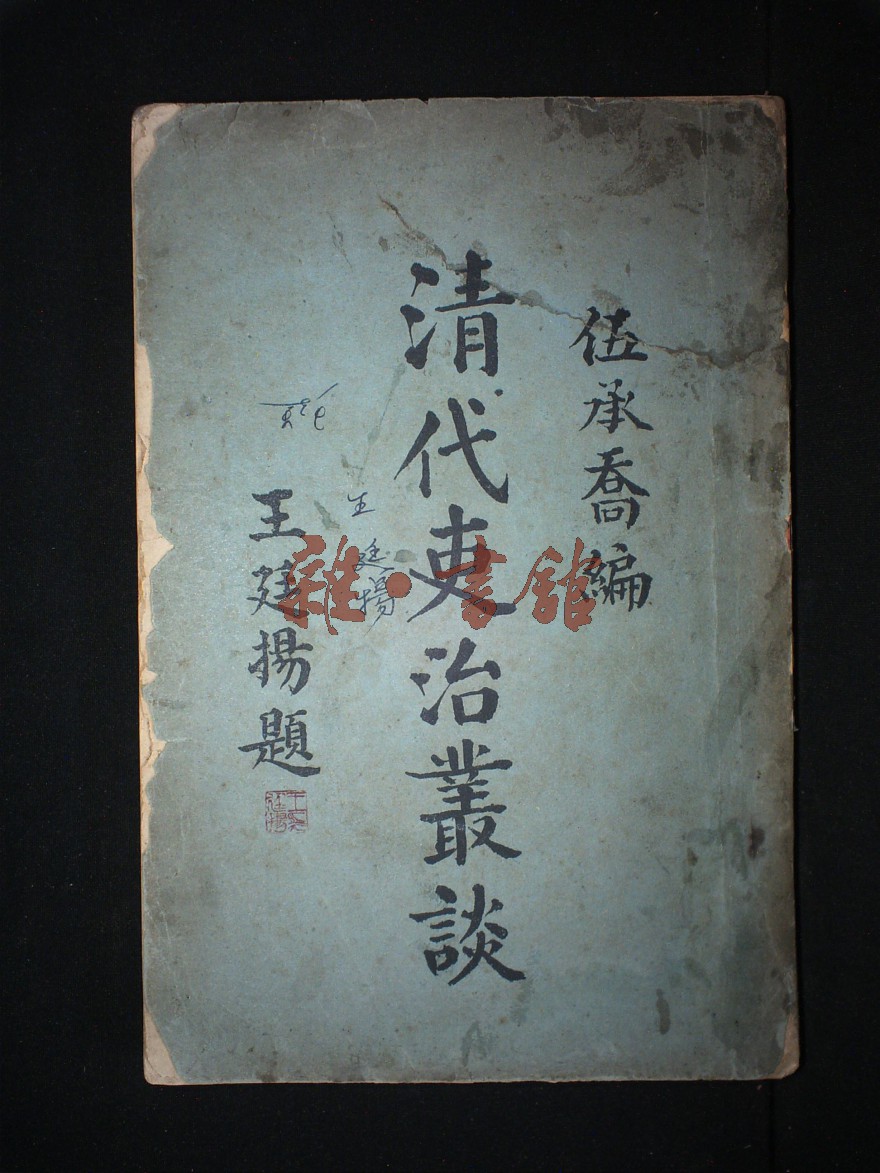 伍承喬編
清代吏治叢談
王廷揚
王廷揚題
雜·書館